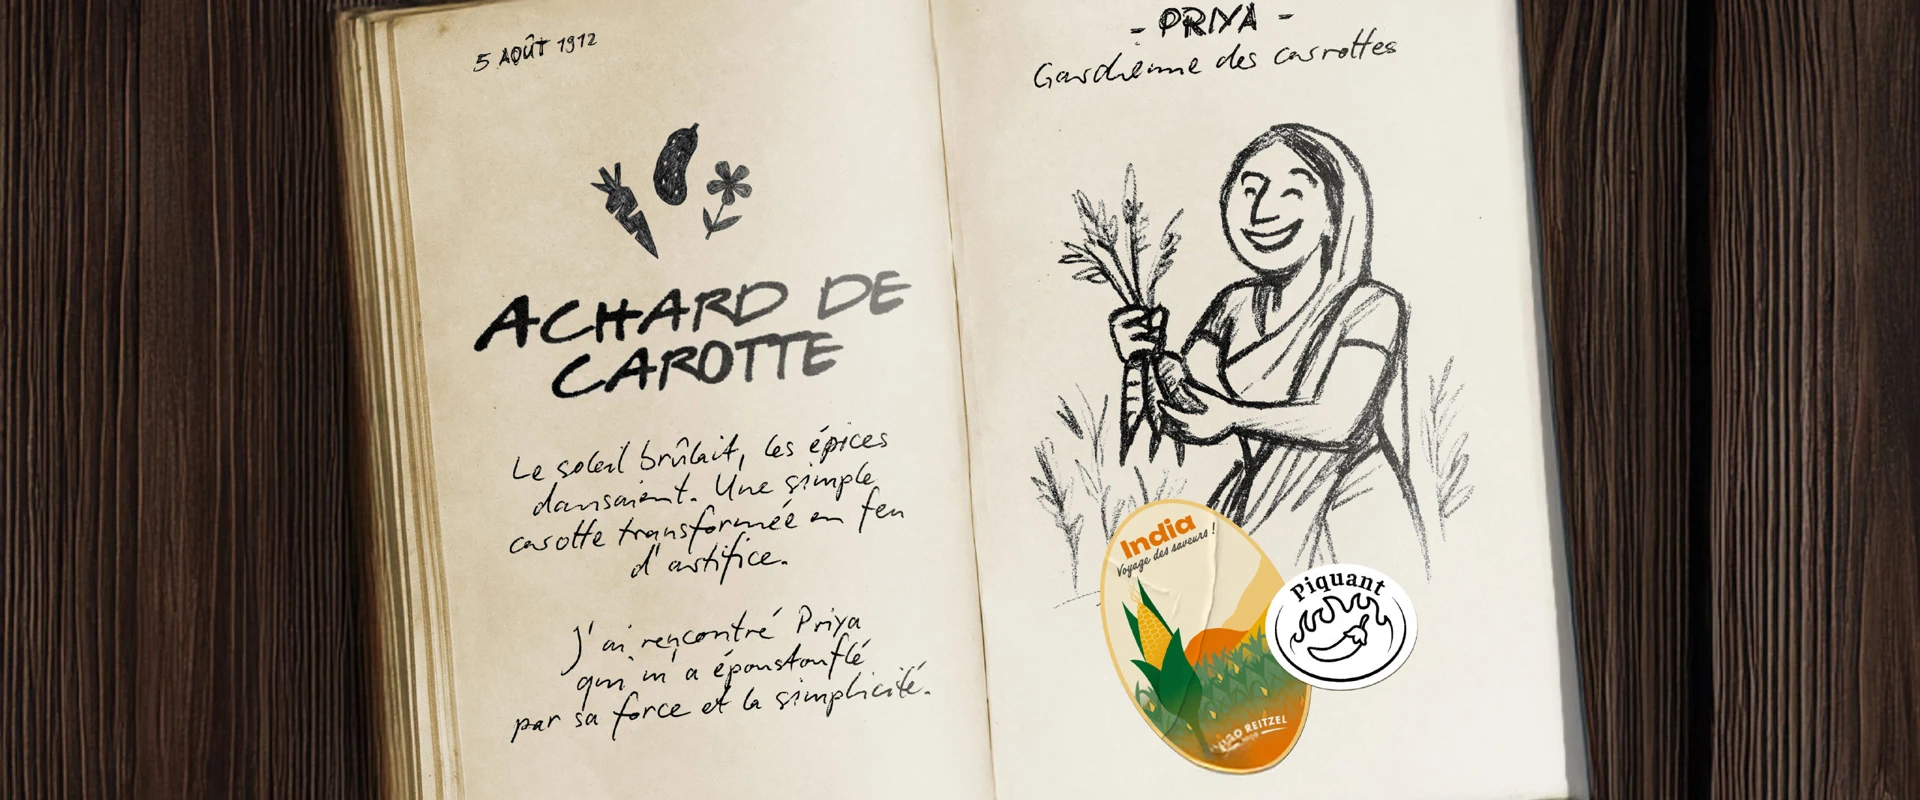 5 AOÛT 1912
ACHARD DE
CAROTTE
Le soleil brûlait, les épices
dansaient. Une simple
carotte transformée en feu
d'artifice.
J'ai rencontré Priya
qui m'a époustouflé
par sa force et la simplicité.
- PRIYA -
Gardienne des carottes
India
Voyage des saveurs !
HUGO REITZEL
Piquant